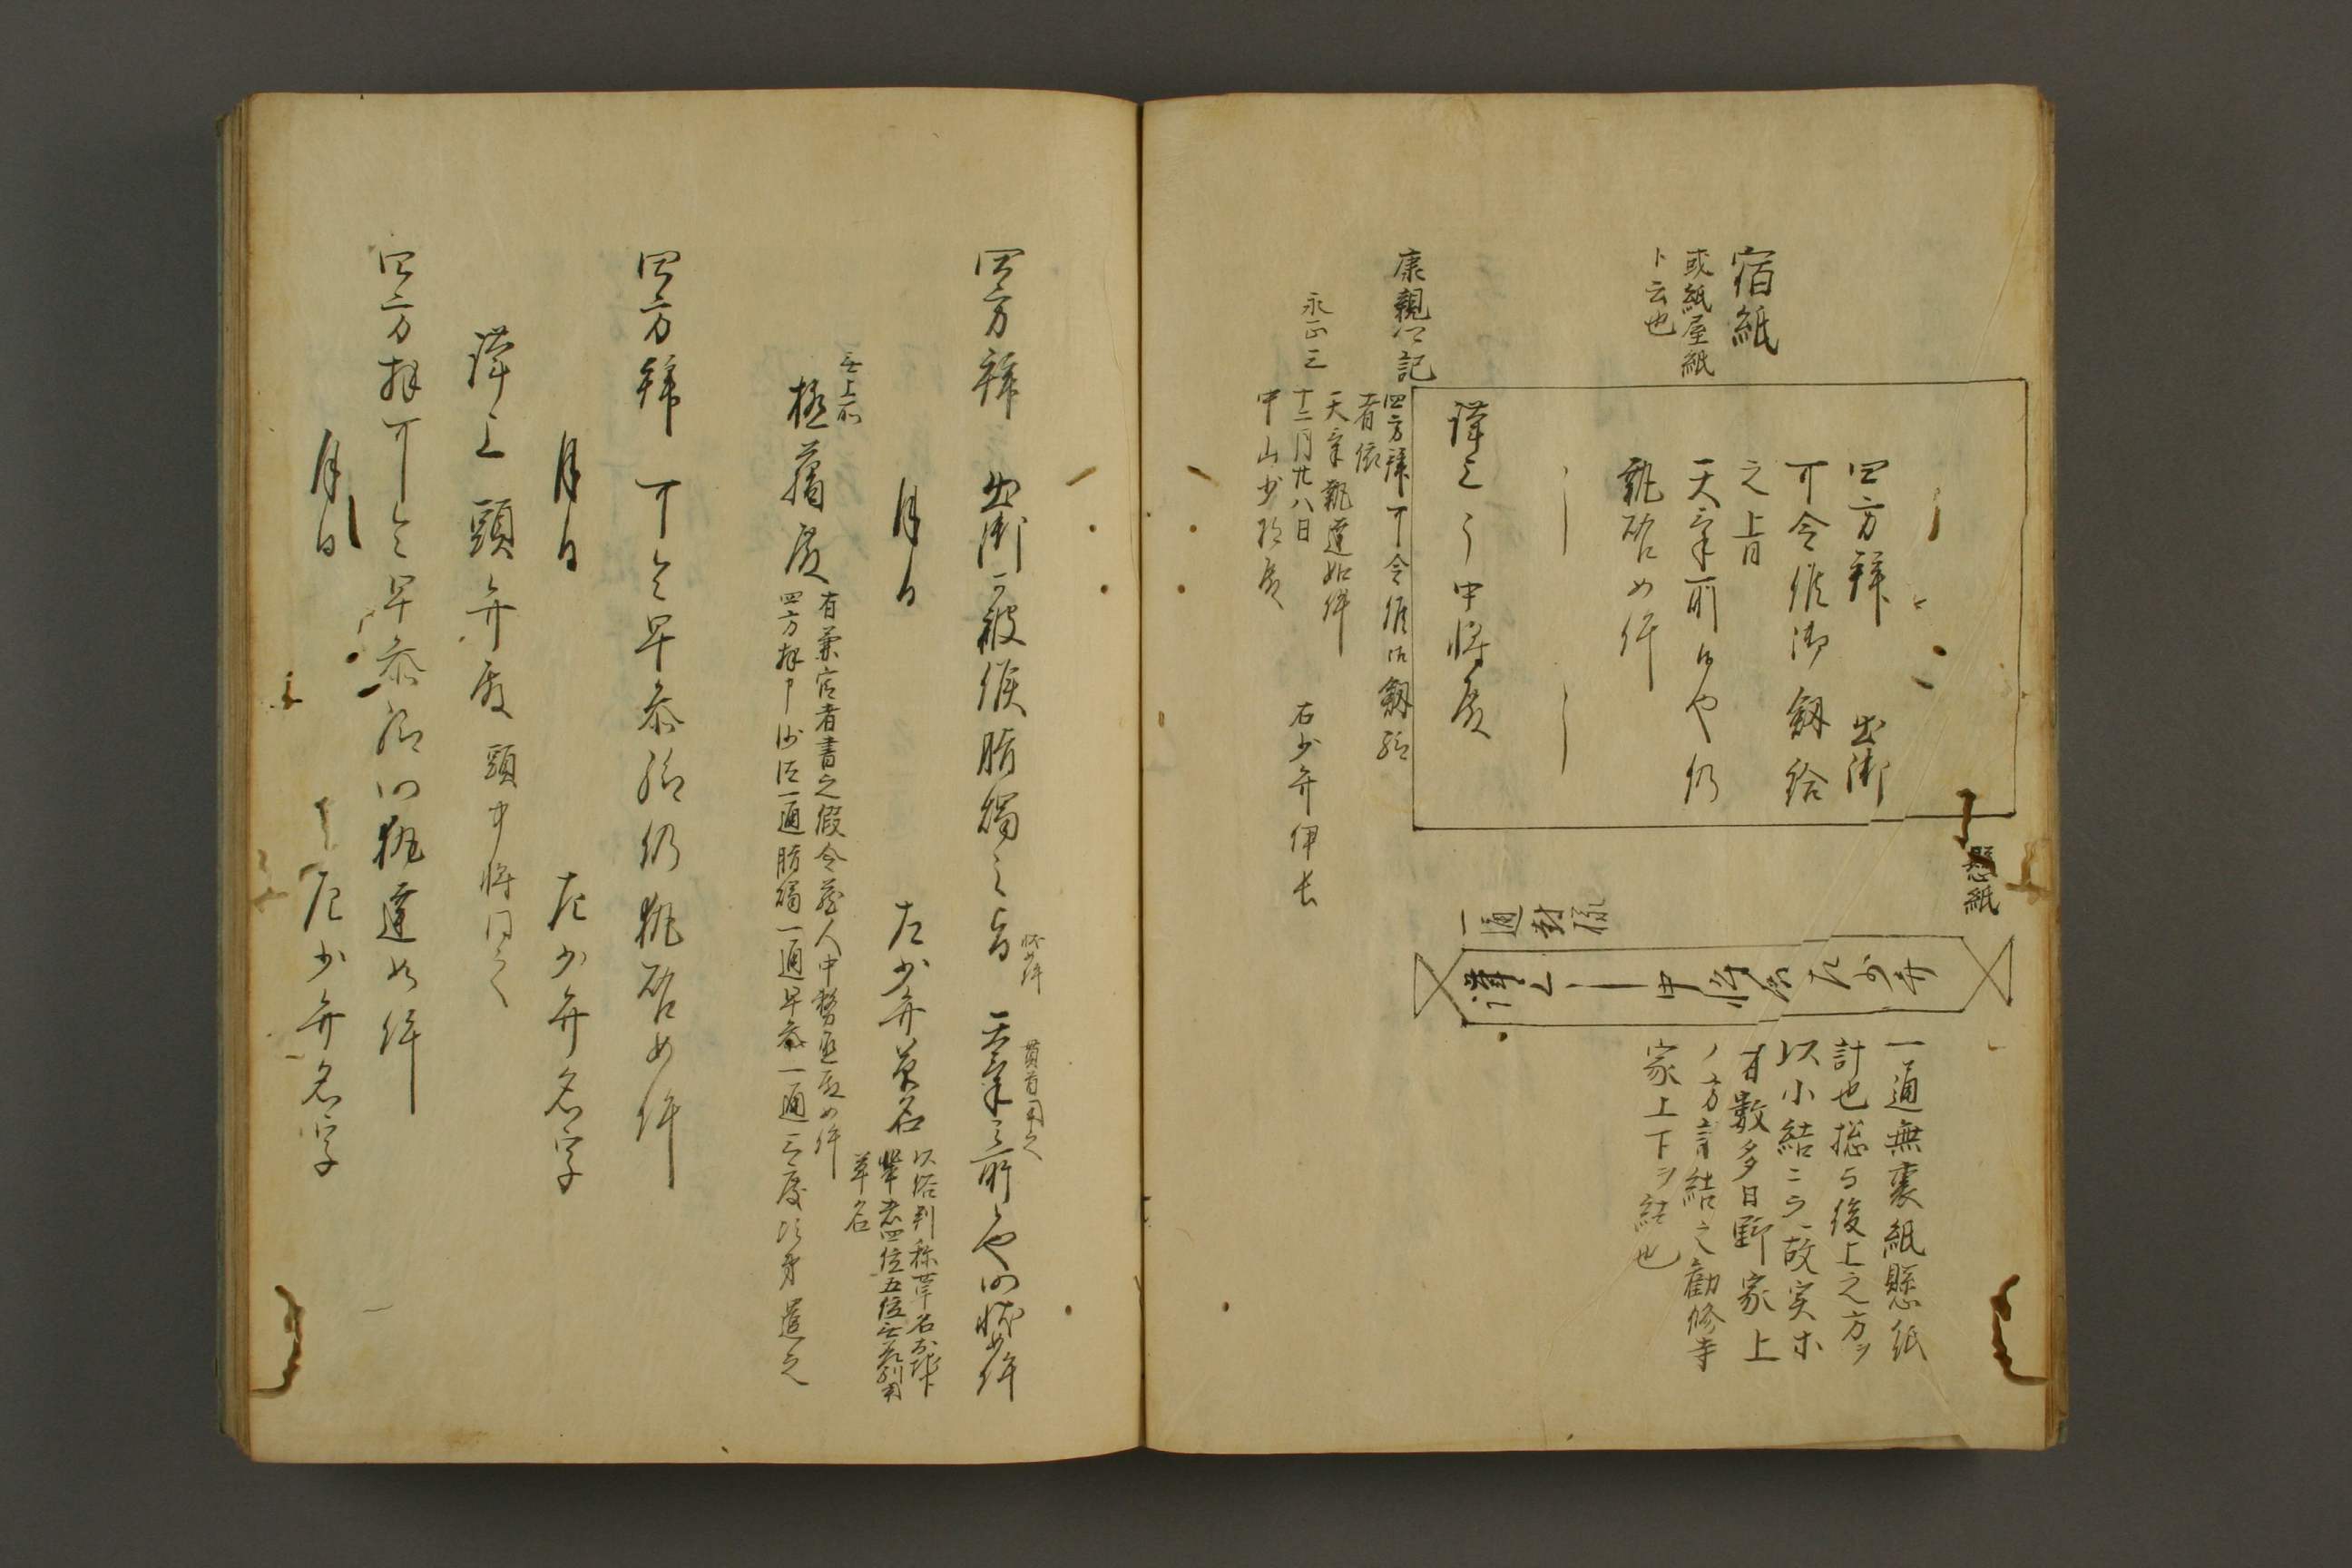 宿紙
或紙屋紙
ト云也
四方拜 出御
可令候御劔給
之旨
天氣所候也仍
執啓如件
謹上 中将殿
懸紙
一通封様
謹上 中将殿 左少弁
一通無裏紙懸紙
計也揔而後上之方ヲ
以小結ニラ故実ホ
才數多日野家上
ノ方計結之勧修寺
家上下ヲ結也
康親卿記
永正三
四方拜可令候御劔給
者依
天氣執達如件
十二月廿八日 右少弁伊長
中山少将殿
四方拜 出御可被候脂燭之旨 天氣所候也仍状如件
状如件
貫首用之
月日 左少弁草名
以俗判称草名
草名
無上所
極﨟殿
有兼官者書之假令蔵人中務丞殿如件
四方拜申沙汰一通脂燭一通早参一通三度次第遣之
四方拜 可令早参給仍執啓如件
月日 左少弁名字
謹上 頭弁殿 頭中将同之
四方拜可令早参給仍執達如件
月日 左少弁名字